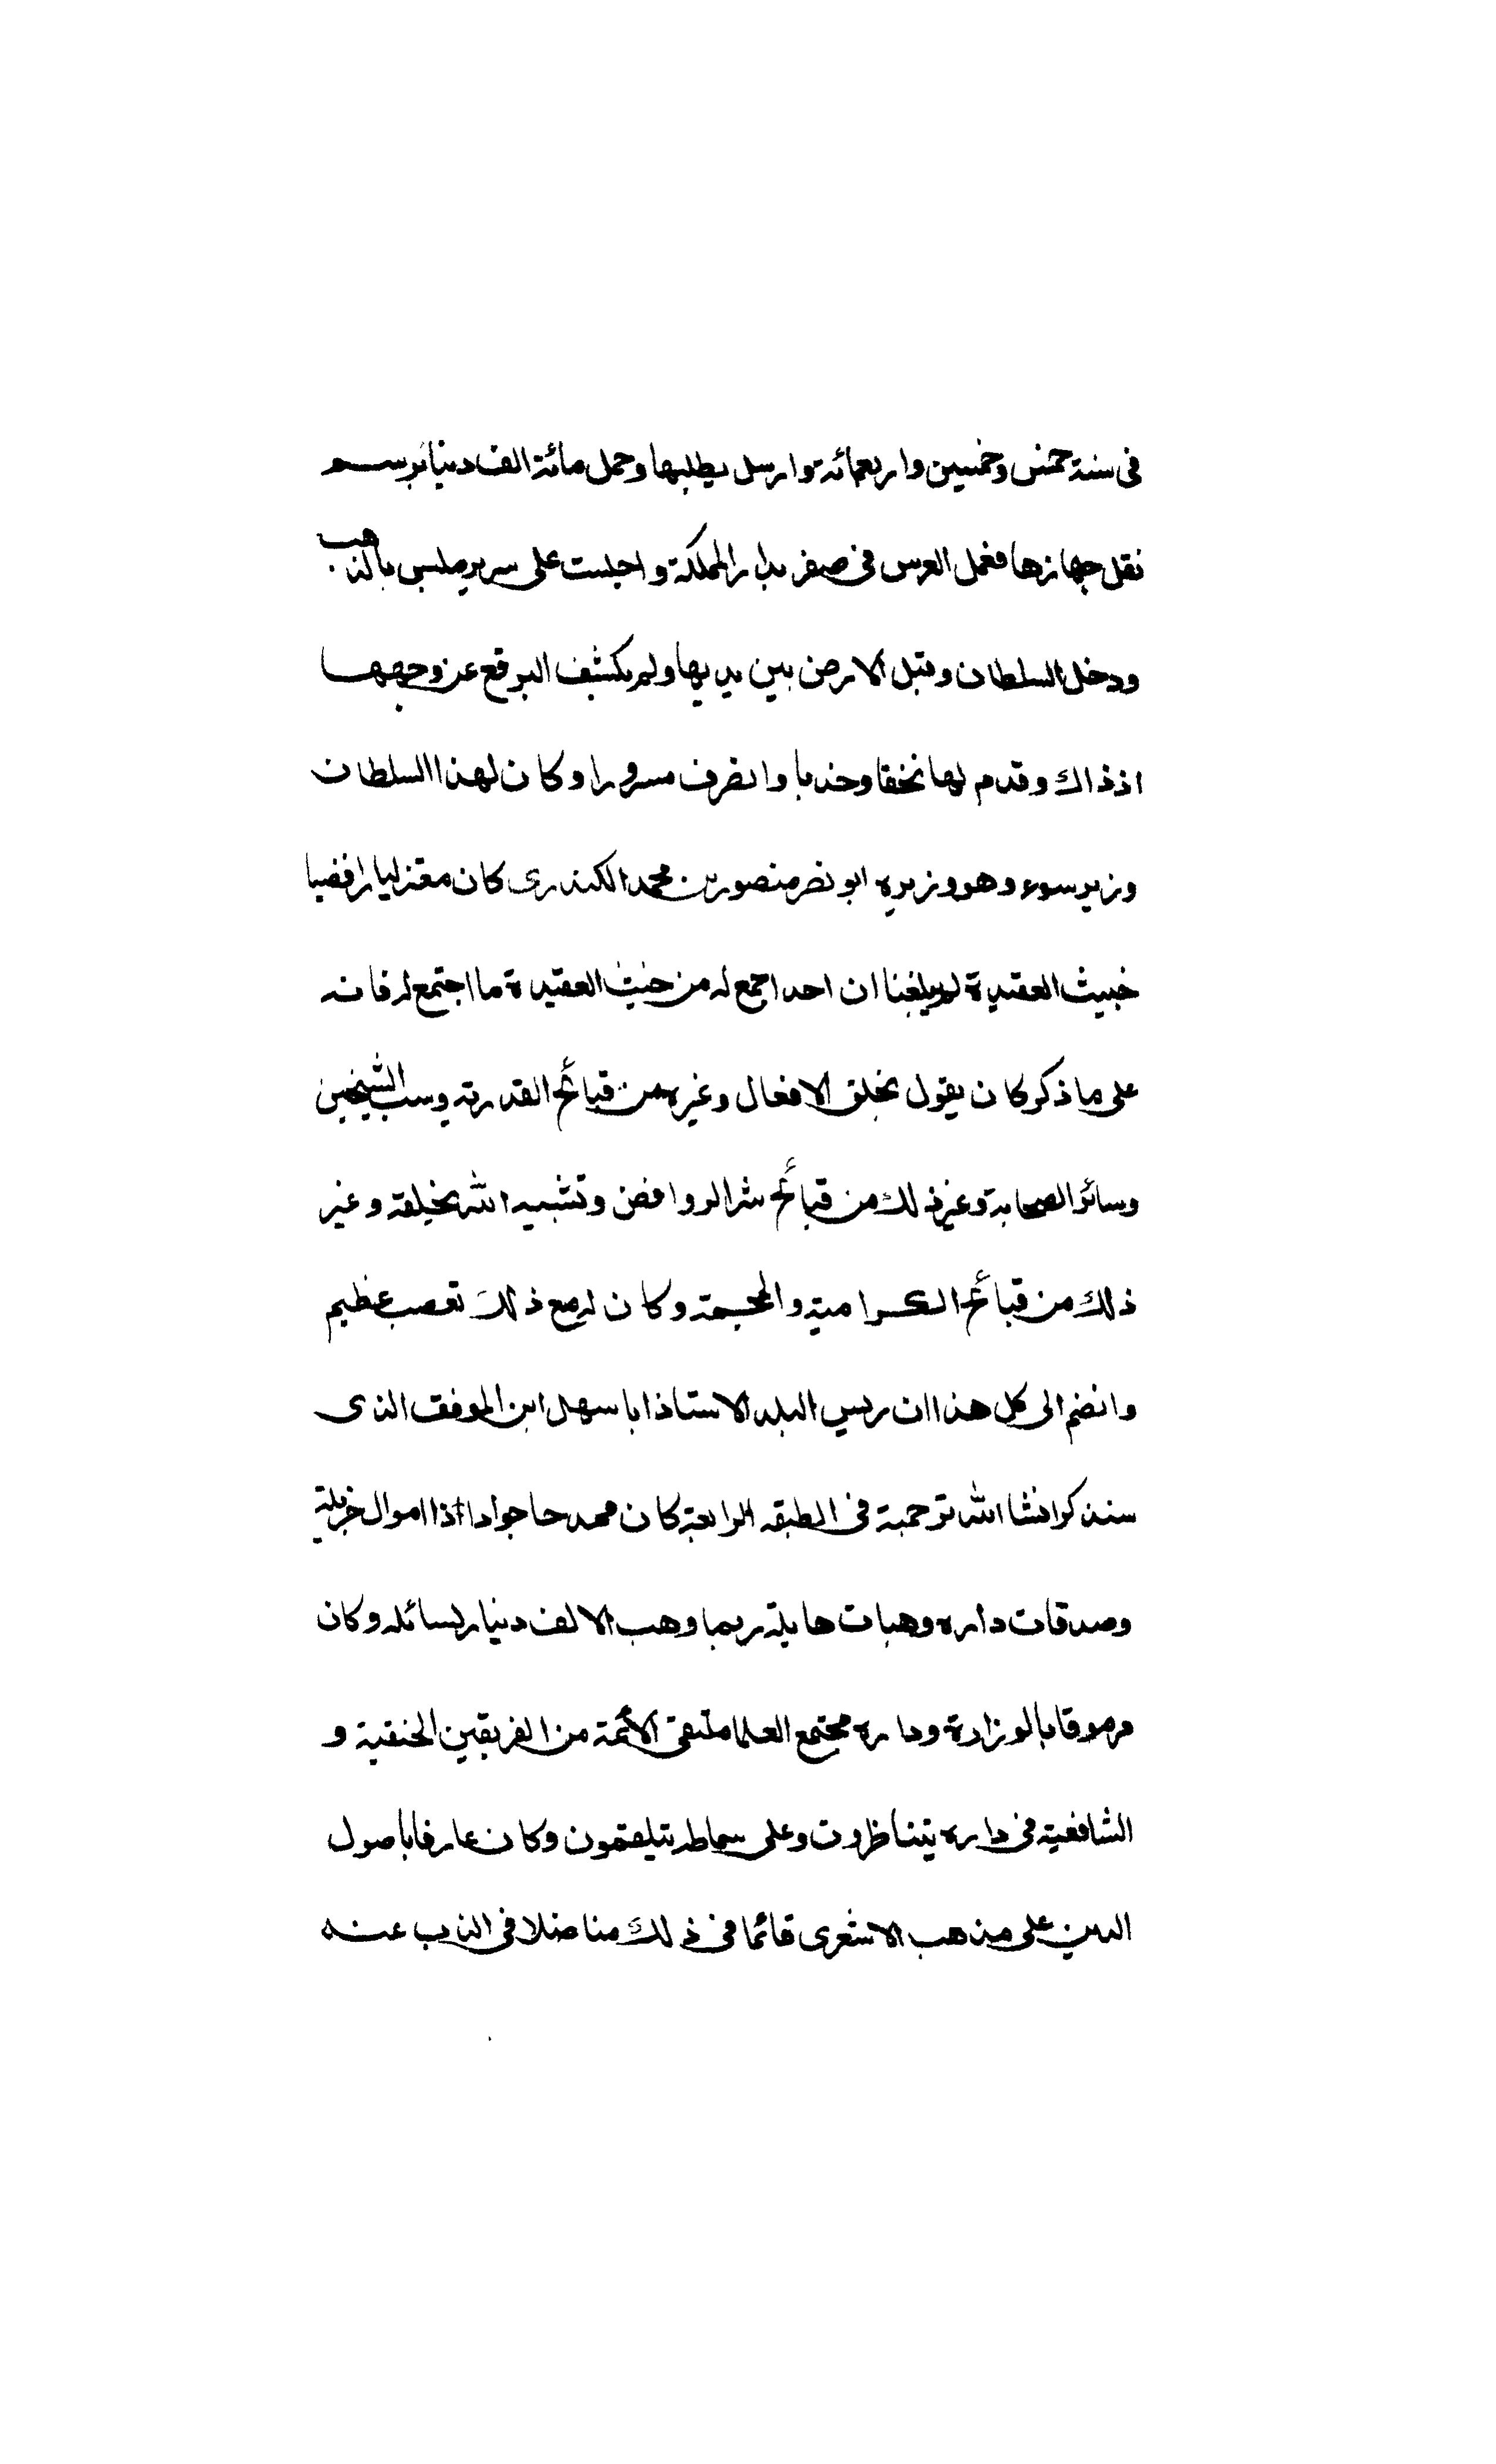 في سنة خمس وخمسين واربعمائة وارسل يطلبها وحمل مائة الف دينار برسم
نقل جهازها فعمل العرس في صفر بدار المملكة واجلست على سرير ملبس بالذهب
ودخل السلطان وقبل الارض بين يديها ولم يكشف البرقع عن وجهها
اذ ذاك وقدم لها تحفا وخدما وانصرف مسرورا وكان لهذا السلطان
وزير سوء وهو وزيره ابو نصر منصور بن محمد الكندرى كان معتزليا رافضيا
خبيث العقيدة لم يبلغنا ان احدا جمع له من خبيث العقيدة ما اجتمع له فانه
على ما ذكر كان يقول بخلق الافعال وغيره من قبائح القدرية وسب الشيخين
وسائر الصحابة وغير ذلك من قبائح شر الروافض وتشبيه الله بخلقه وغير
ذلك من قبائح الكرامية والمجسمة وكان له مع ذلك تعصب عظيم
وانضم الى كل هذا ان رييس البلد الاستاذ ابا سهل ابن الموفق الذى
سنذكر انشا الله ترجمته في الطبقه الرابعة كان ممدحا جوادا ذا اموال جزيلة
وصدقات داره وهبات هايلة ربما وهب الالف دينار لسائله وكان
مرموقا بالوزارة وداره مجتمع العلما ملتقى الأئمة من الفريقين الحنفية و
الشافعية في داره يتناظرون وعلى سماطه يتلقمون وكان عارفا بأصول
الدين على مذهب الاشعرى قائما في ذلك مناضلا في الذب عنه